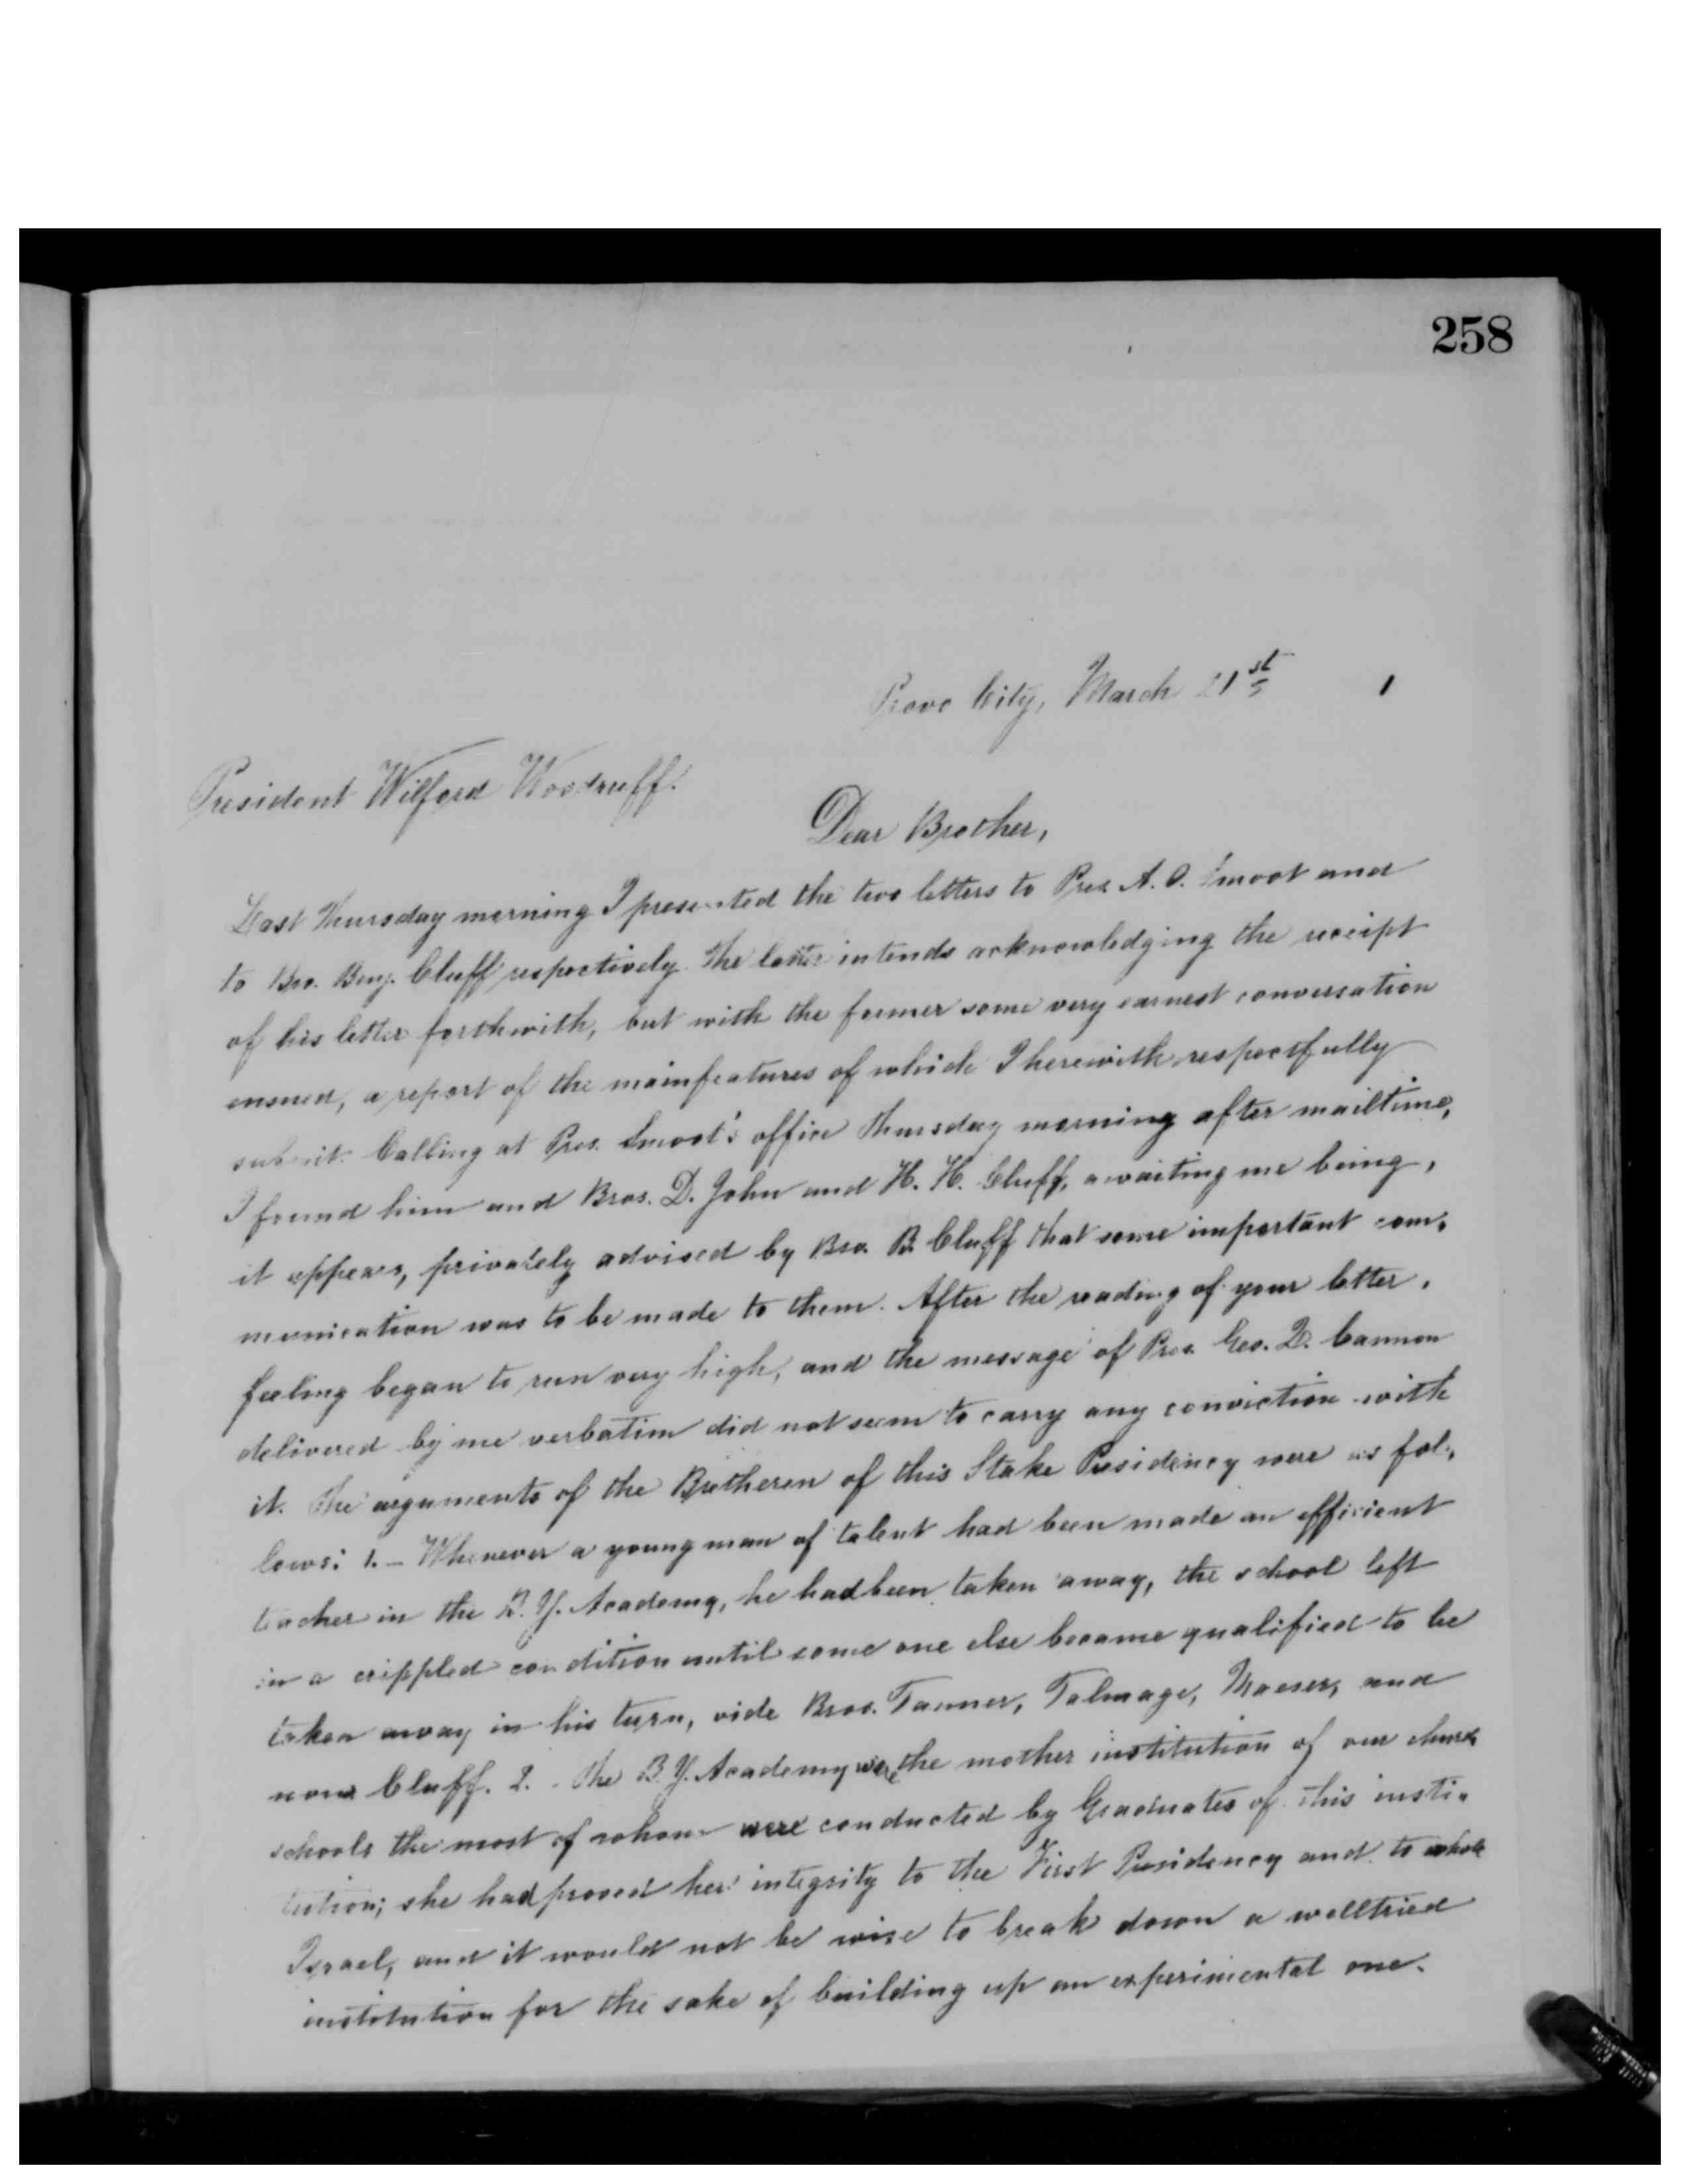 258
Provo City, March 21st
President Wilford Woodruff.
Dear Brother,
Last Thursday morning I presented the two letters to Pres. A. O. Smoot and
to Bro. Benj. Cluff respectively. The latter intends acknowledging the receipt
of his letter forthwith, but with the former some very earnest conversation
ensued, a report of the mainfeatures of which I herewith respectfully
submit. Calling at Pres. Smoot's office Thursday morning after mailtime,
I found him and Bros. D. John and H. H. Cluff, awaiting me being,
it appears, privately advised by Bro. B. Cluff that some important com-
munication was to be made to them. After the reading of your letter,
feeling began to run very high, and the message of Pres. Geo. Q. Cannon
delivered by me verbatim did not seem to carry any conviction with
it. The arguments of the Bretheren of this Stake Presidency were as fol-
lows: 1. – Whenever a young man of talent had been made an efficient
teacher in the B. Y. Academy, he had been taken away, the school left
in a crippled condition until some one else became qualified to be
taken away in his turn, vide Bros. Tanner, Talmage, Maeser, and
now Cluff. 2. – The B. Y. Academy were the mother institution of our church
schools the most of whom were conducted by Graduates of this insti-
tution; she had proved her integrity to the First Presidency and to whole
Israel, and it would not be wise to break down a welltried
institution for the sake of building up an experimental one.